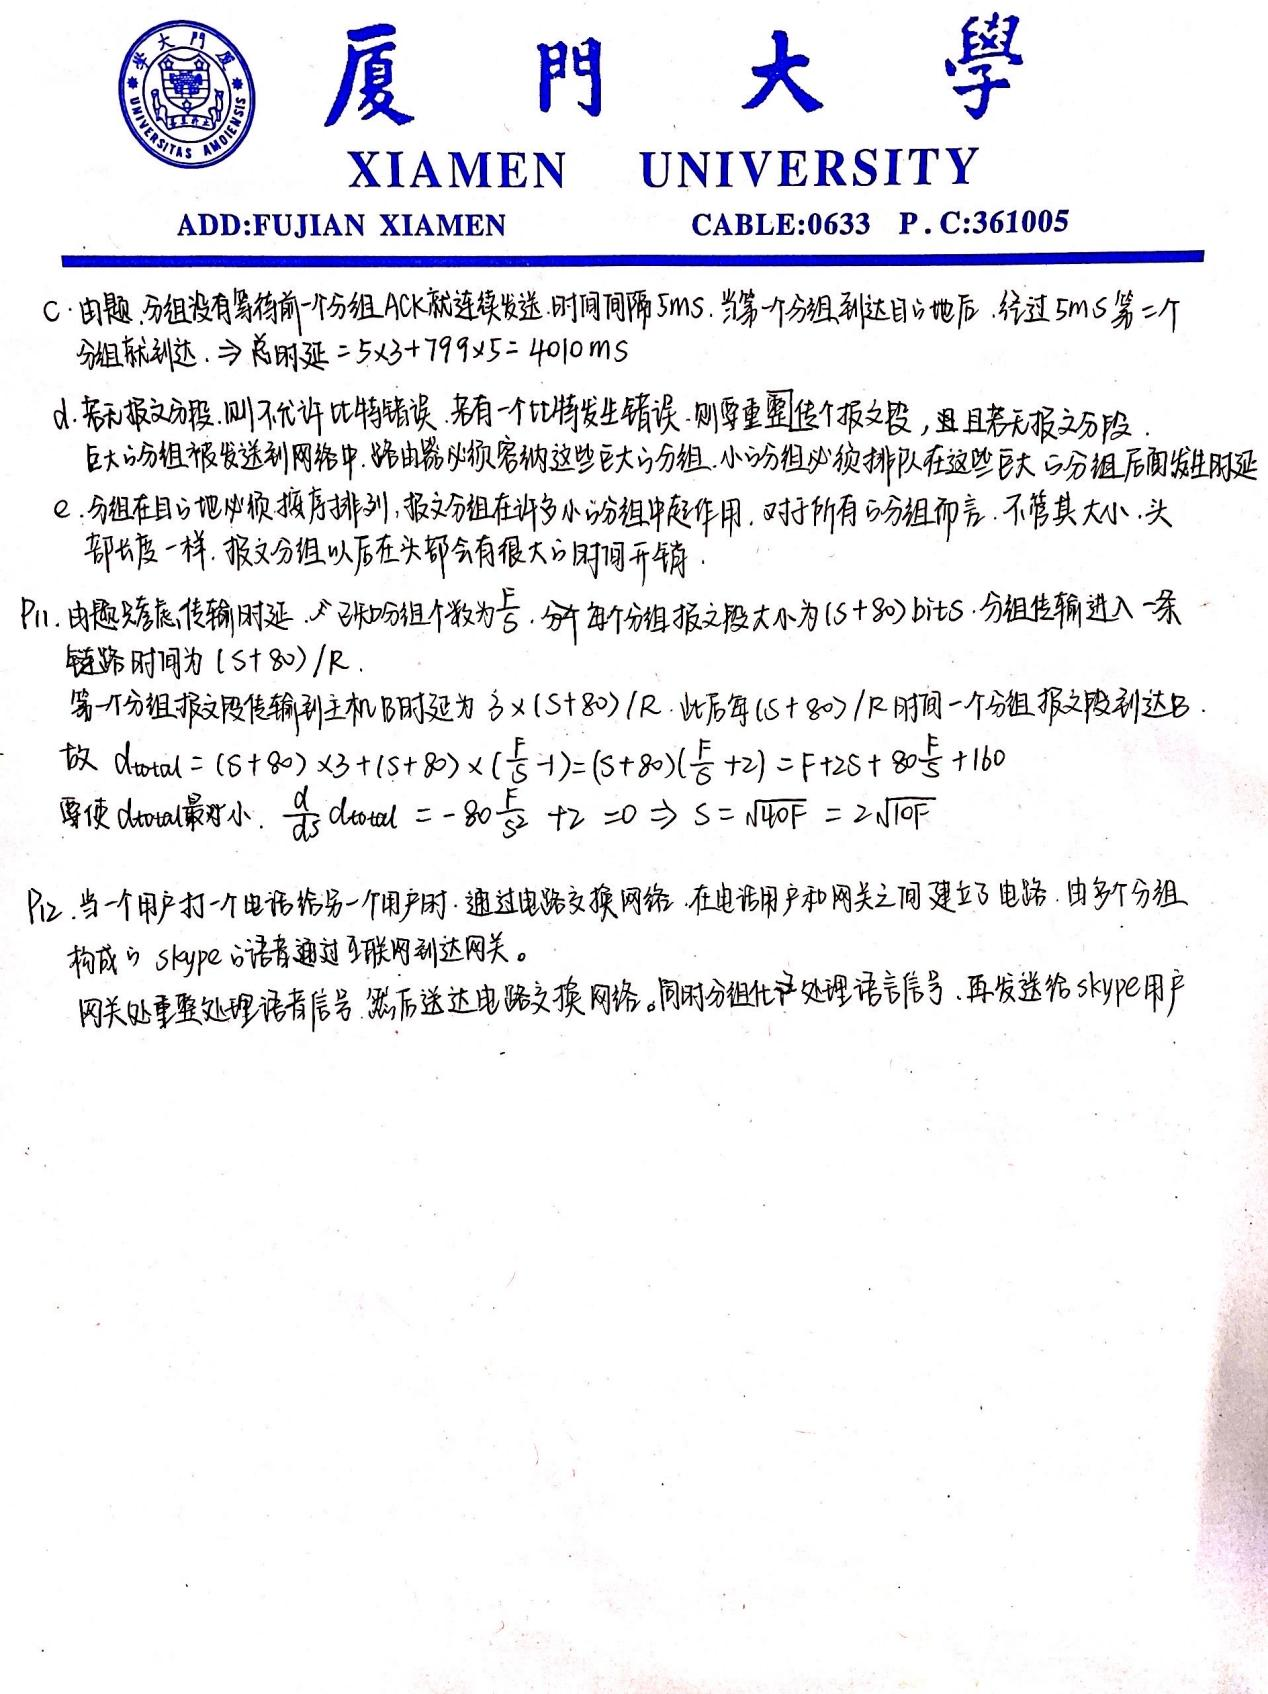 厦門大學
UNIVERSITAS AMOIENSIS
XIAMEN UNIVERSITY
ADD:FUJIAN XIAMEN CABLE:0633 P.C:361005
C. 由题,分组没有等待前一个分组ACK就连续发送.时间间隔5ms.当第一个分组到达目的地后.经过5ms第二个
分组就到达.⇒总时延=5×3+799×5=4010ms
d.若无报文分段.则不允许比特错误.若有一个比特发生错误.则要重传整个报文段,且若无报文分段.
巨大的分组被发送到网络中.路由器必须容纳这些巨大的分组.小的分组必须排队在这些巨大的分组后面发生时延
e.分组在目的地必须按序排列,报文分组在许多小的分组中起作用.对于所有的分组而言.不管其大小.头
部长度一样.报文分组以后在头部会有很大的时间开销.
P11.由题只考虑传输时延.已知分组个数为F/S.每个分组报文段大小为(S+80)bits.分组传输进入一条
链路时间为(S+80)/R.
第一个分组报文段传输到主机B时延为3×(S+80)/R.此后每(S+80)/R时间一个分组报文段到达B.
故 dtotal=(S+80)×3+(S+80)×(F/S-1)=(S+80)(F/S+2)=F+2S+80F/S+160
要使dtotal最小. d/dS dtotal = -80 F/S² +2 =0 ⇒ S=√40F = 2√10F
P12.当一个用户打一个电话给另一个用户时.通过电路交换网络.在电话用户和网关之间建立了电路.由多个分组
构成的skype的语音通过互联网到达网关。
网关处重整处理语音信号.然后送达电路交换网络。同时分组化处理语言信号.再发送给skype用户